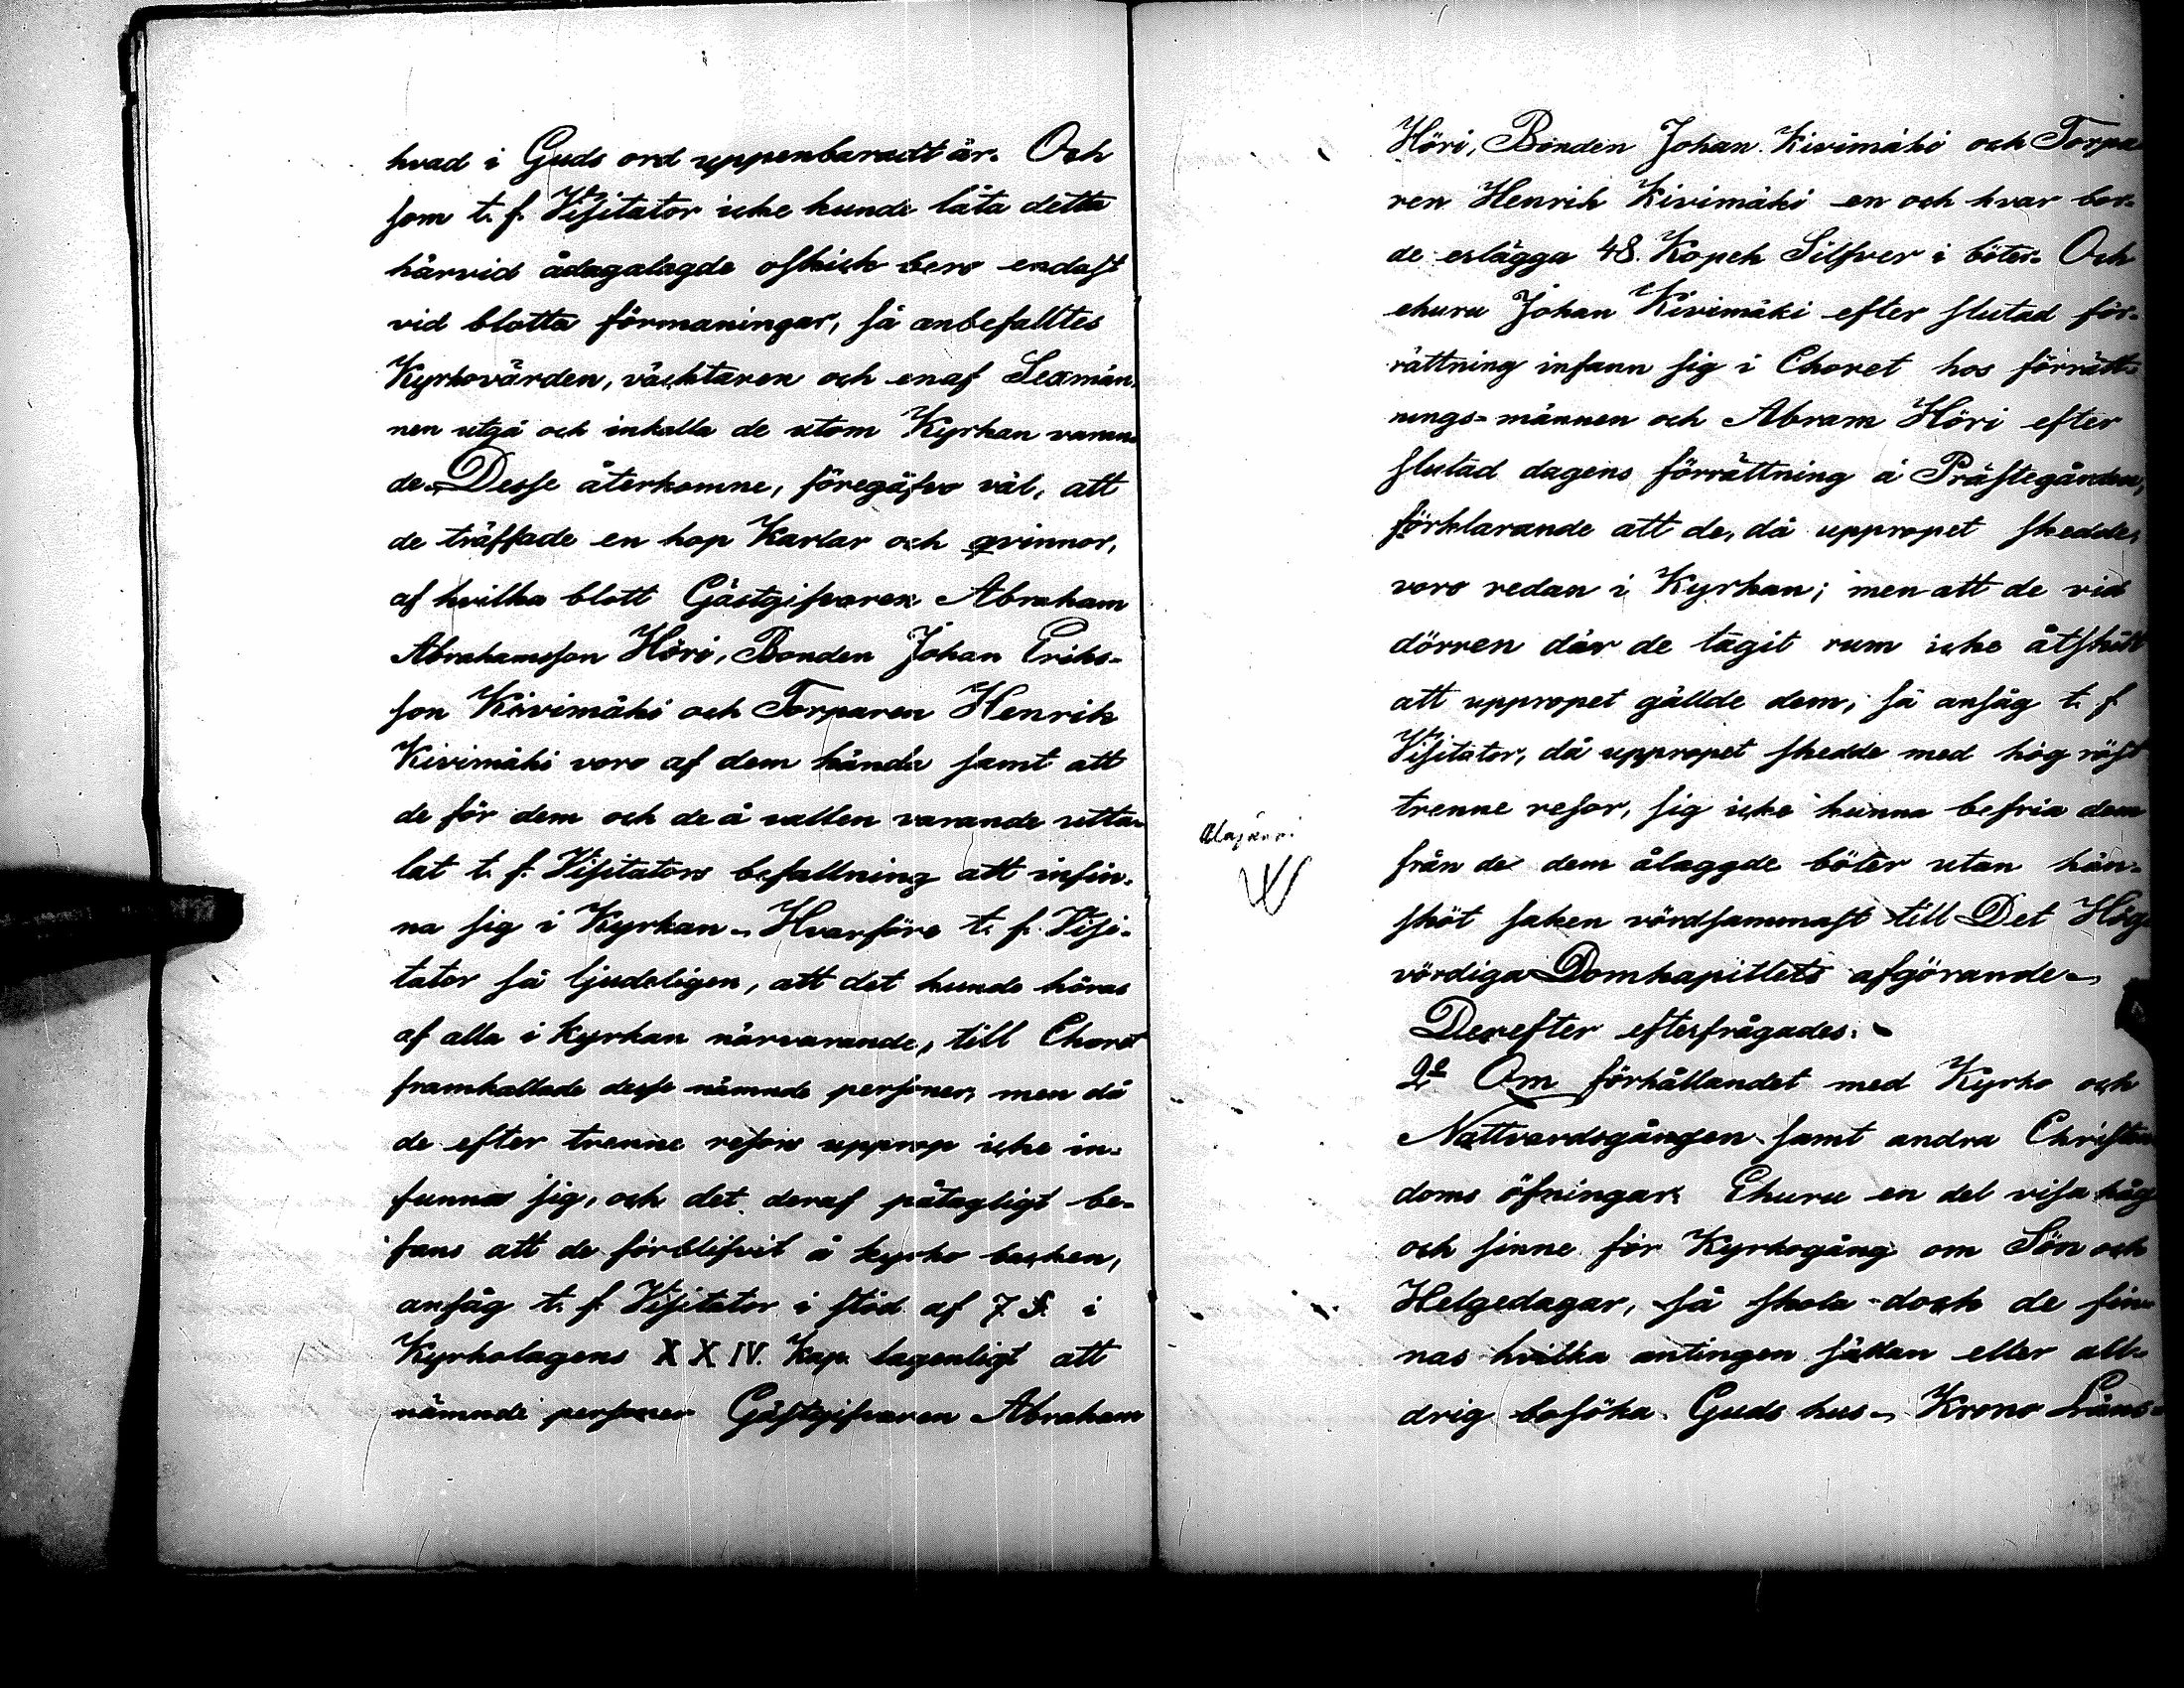 hvad i Guds ord uppenbaradt är. Och
som t. f. Visitator icke kunde låta detta
härvid ådagalagde oskick bero endast
vid blotta förmaningar, så anbefalltes
Kyrkovärden, väcktaren och enaf Sexmän-
nen utgå och inkalla de utom Kyrkan varan
de. Desse återkomne, föregåfvo väl, att
de träffade en hop Karlar och qvinnor,
af hvilka blott Gästgifvaren Abraham
Abrahamsson Höri, Bonden Johan Eriks-
son Kivimäki och Torparen Henrik
Kivimäki voro af dem kända samt att
de för dem och de å vallen varande utta-
lat t. f. Visitators befallning att infin-
na sig i Kyrkan. Hvarföre t. f. Visi-
tator så ljudeligen, att det kunde höras
af alla i Kyrkan närvarande, till Choret
framkallade desse nämnde personer, men då
de efter trenne resors upprop icke in-
funno sig, och det deraf påtagligt be-
fans att de förblifvit å kyrko backen,
ansåg t. f. Visitator i stöd af 7. §. i
Kyrkolagens XXIV. Kap. lagenligt att
nämnde personer Gästgifvaren Abraham
Höri, Bonden Johan Kivimäki och Torpa
ren Henrik Kivimäki en och hvar bor-
de erlägga 48. Kopek Silfver i böter. Och
ehuru Johan Kivimäki efter slutad för-
rättning infann sig i Choret hos förrätt-
nings-männen och Abram Höri efter
slutad dagens förrättning å Prästegården,
förklarande att de, då uppropet skedde,
voro redan i Kyrkan; men att de vid
dörren där de tagit rum icke åtskilt
att uppropet gällde dem, så ansåg t. f
Visitator, då uppropet skedde med hög röst
trenne resor, sig icke kunna befria dem
från de dem ålaggde böter utan hän-
sköt saken vördsammast till Det Hög
vördiga Domkapitlets afgörande.
Derefter efterfrågades:
2o Om förhållandet med Kyrko och
Nattvardsgången samt andra Christen
doms öfningar. Ehuru en del visa håg
och sinne för Kyrkogång om Sön och
Helgedagar, så skola dock de fin
nas hvilka antingen sällan eller all-
drig besöka Guds hus. Krono Läns-